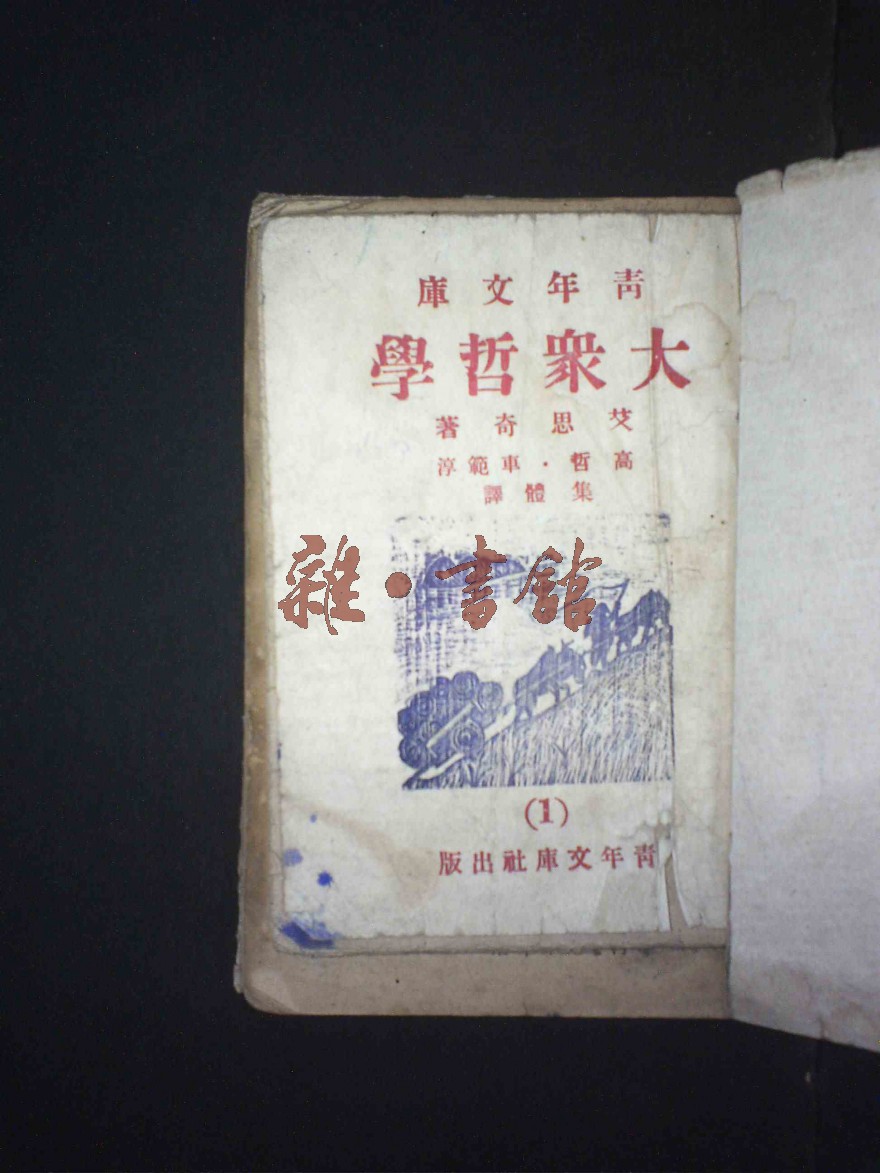 青年文庫
大衆哲學
艾思奇著
高哲・車範淳
集體譯
雜・書館
(1)
青年文庫社出版